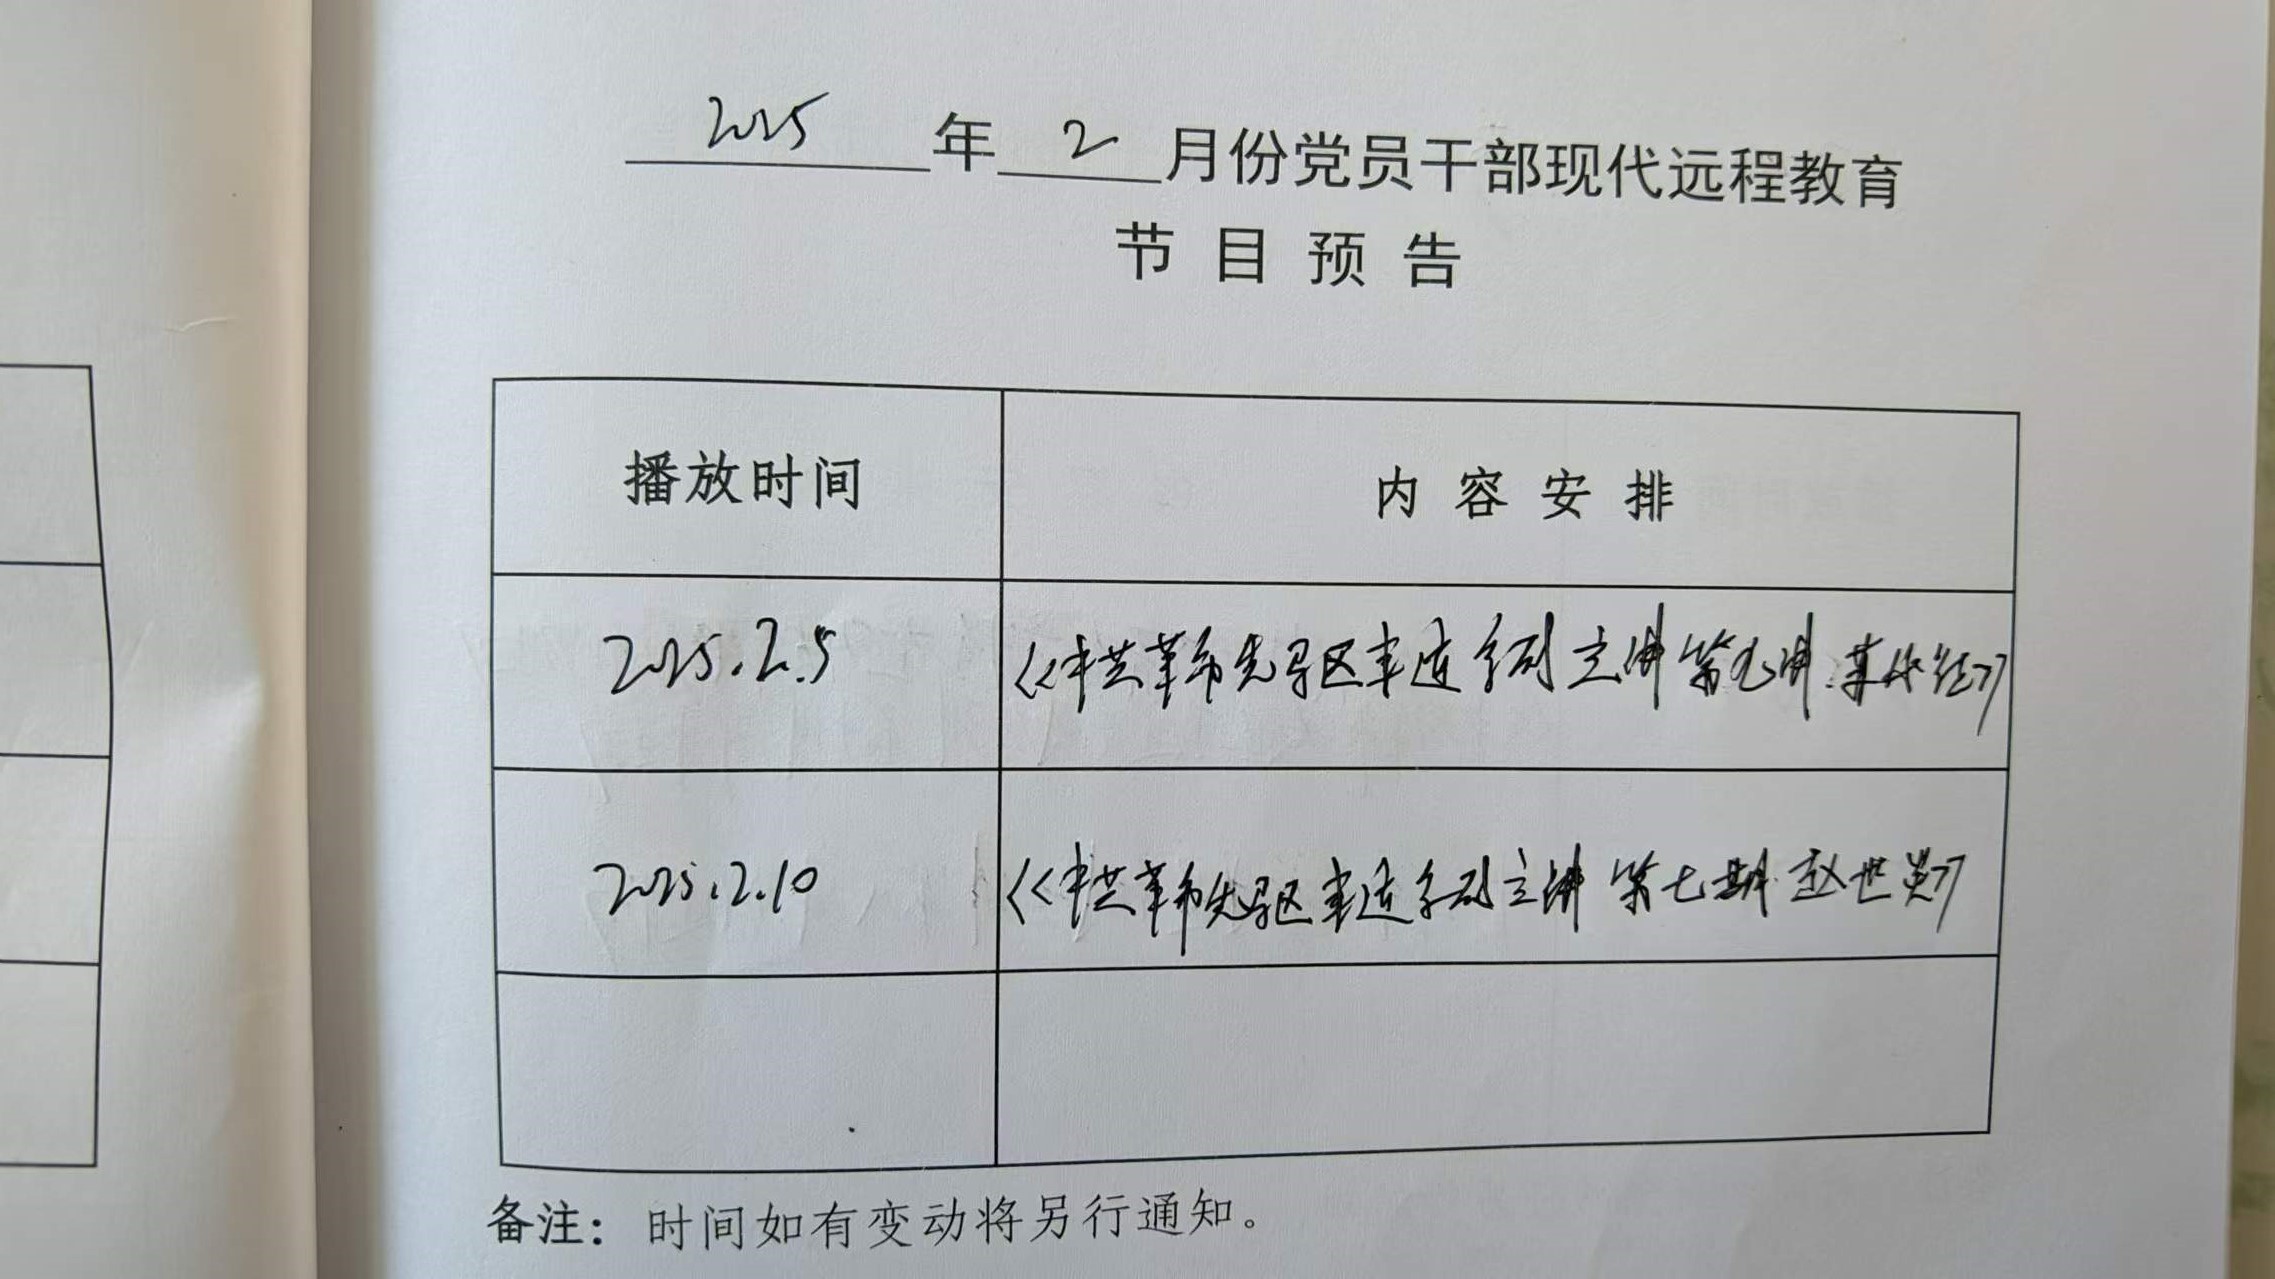 2025年2月份党员干部现代远程教育
节目预告
播放时间 内容安排
2025.2.5 《中共革命先驱 系列 讲 第 讲
2025.2.10 《中共革命先驱 系列 讲 第七期 赵世炎》
备注：时间如有变动将另行通知。